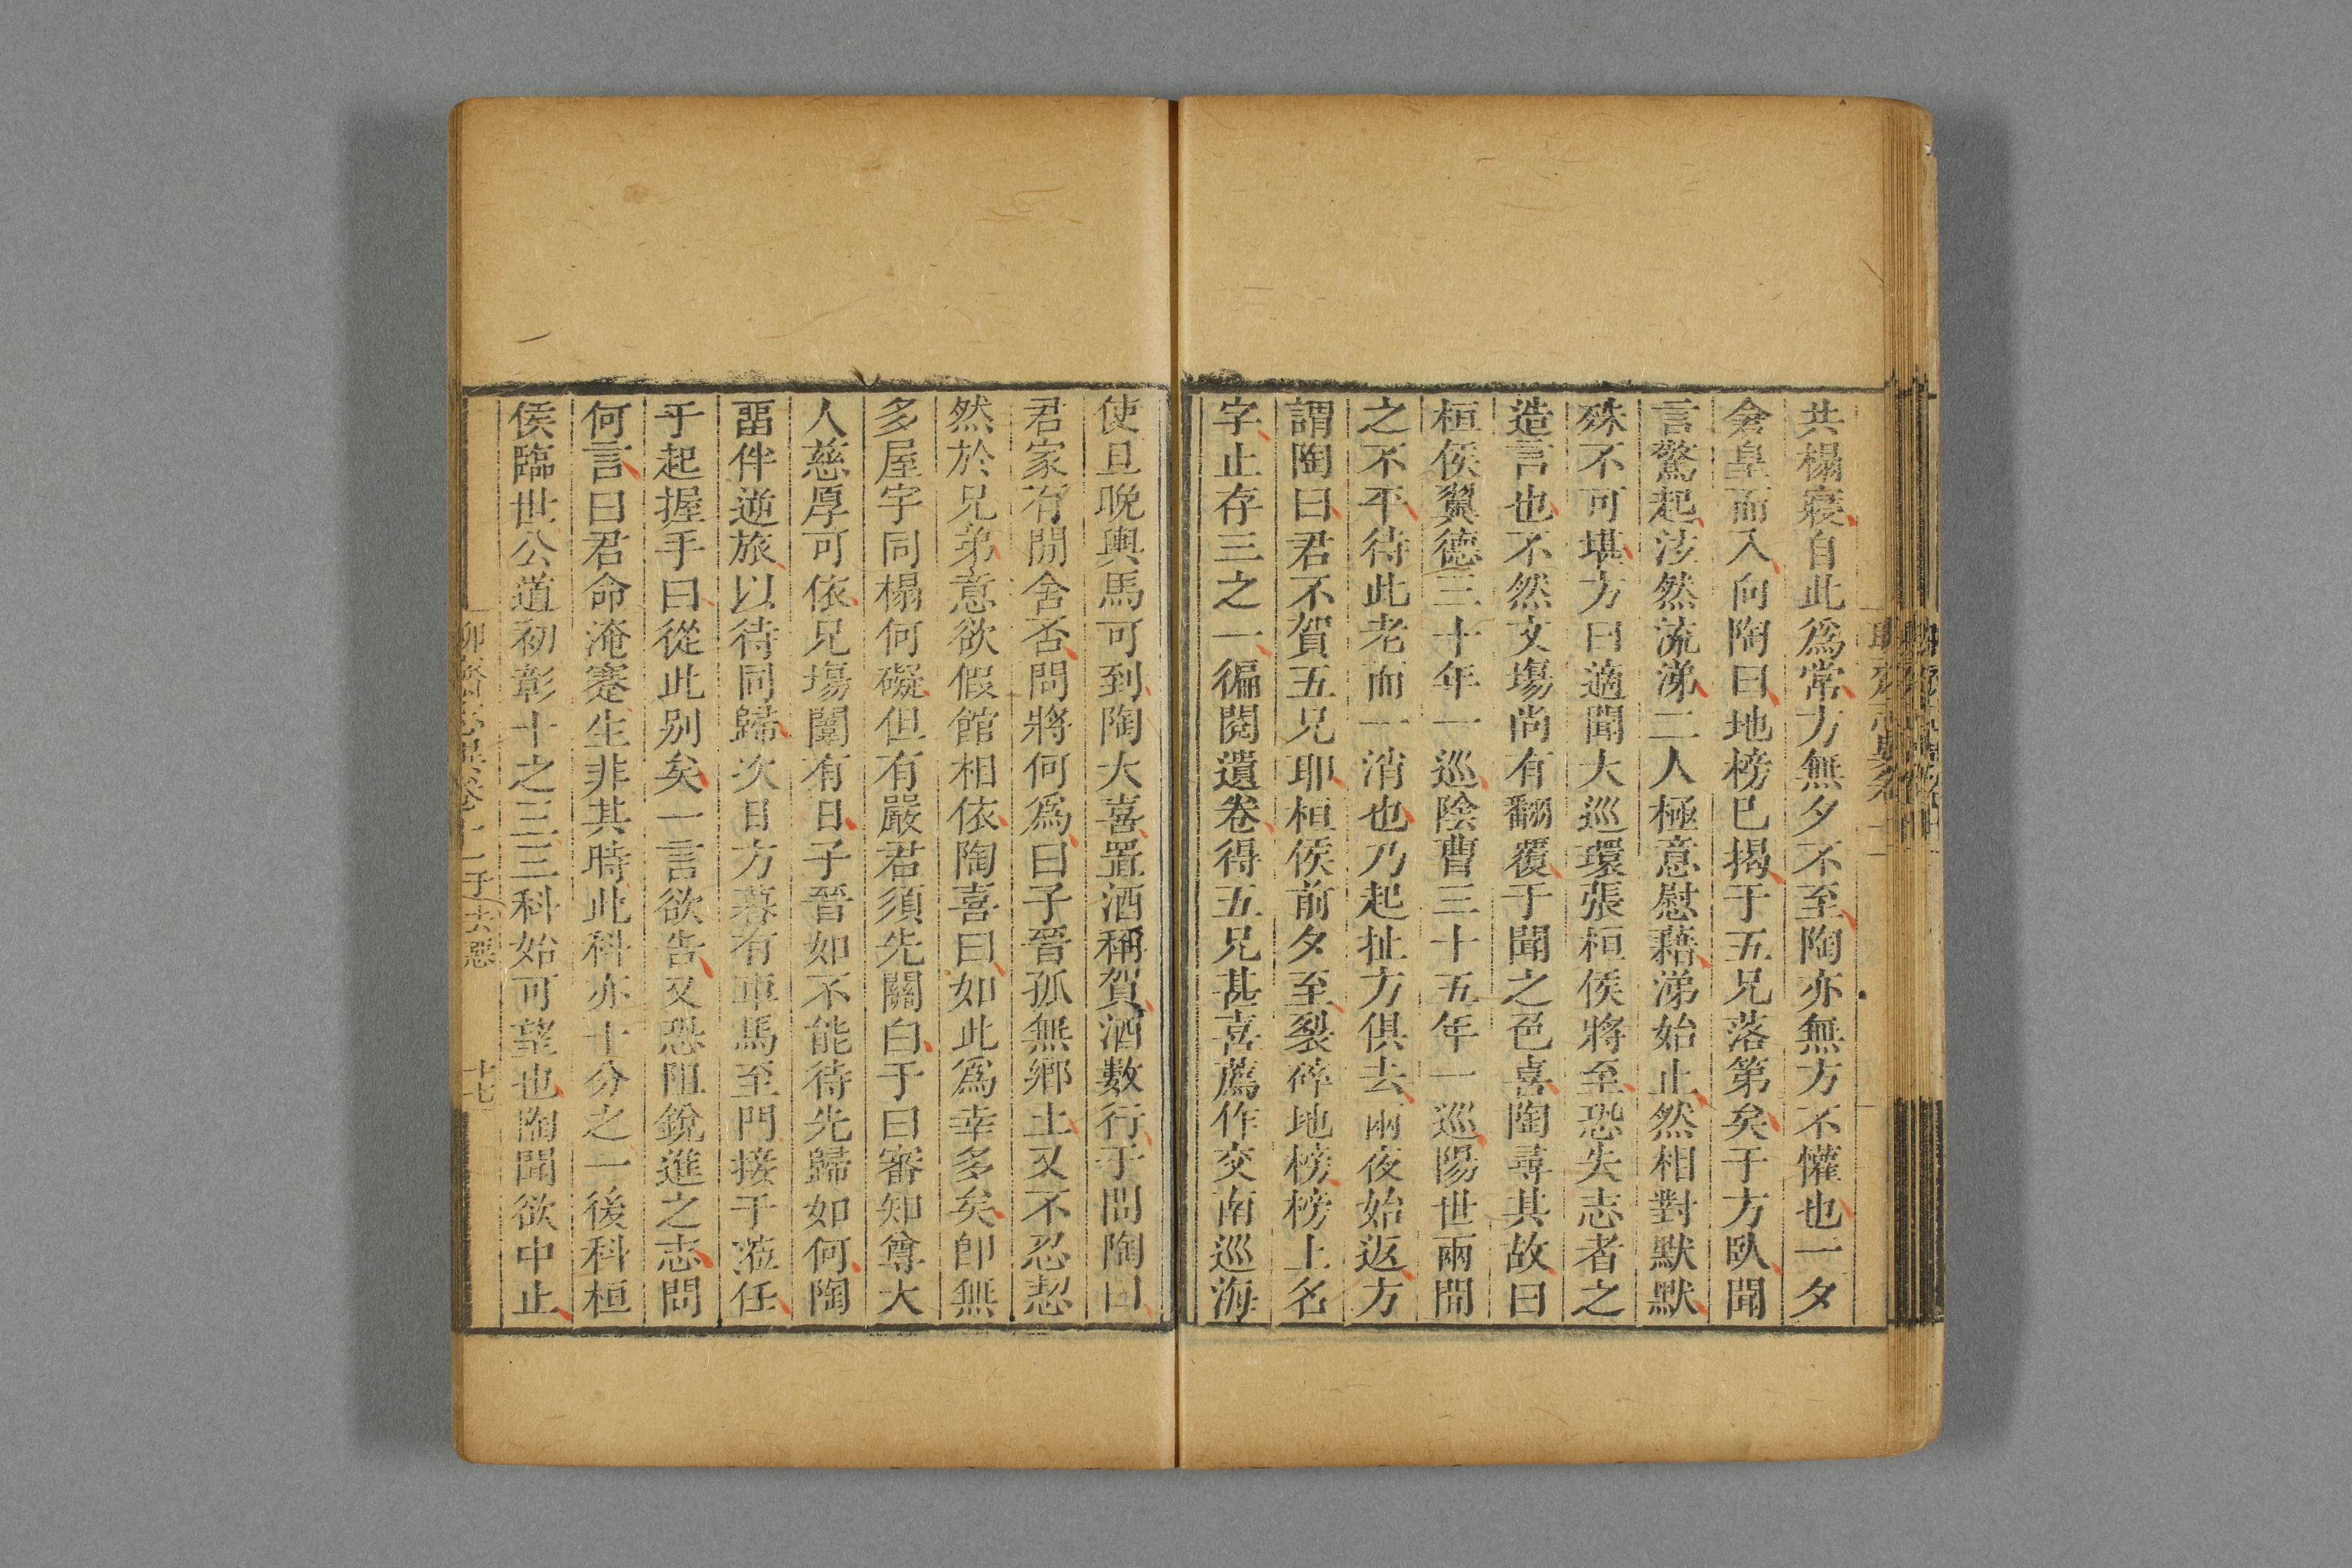 共榻寢自此爲常方無夕不至陶亦無方不懽也一夕
倉皇而入向陶曰地榜已揭于五兄落第矣于方臥聞
言驚起泫然流涕二人極意慰藉涕始止然相對默默
殊不可堪方曰適聞大巡環張桓侯將至恐失志者之
造言也不然文塲尚有翻覆于聞之色喜陶尋其故曰
桓侯翼德三十年一巡陰曹三十五年一巡陽世兩間
之不平待此老而一消也乃起扯方俱去兩夜始返方
謂陶曰君不賀五兄耶桓侯前夕至裂碎地榜榜上名
字止存三之一徧閱遺卷得五兄甚喜薦作交南巡海
使旦晚輿馬可到陶大喜置酒稱賀酒數行于問陶曰
君家有閒舍否問將何爲曰子晉孤無鄉土又不忍恝
然於兄弟意欲假館相依陶喜曰如此爲幸多矣卽無
多屋宇同榻何礙但有嚴君須先關白于曰審知尊大
人慈厚可依兄塲闈有日子晉如不能待先歸如何陶
畱伴逆旅以待同歸次日方暮有車馬至門接于蒞任
于起握手曰從此別矣一言欲告又恐阻銳進之志問
何言曰君命淹蹇生非其時此科亦十分之一後科桓
侯臨世公道初彰十之三三科始可望也陶聞欲中止
聊齋志異卷十一 于去惡 十七